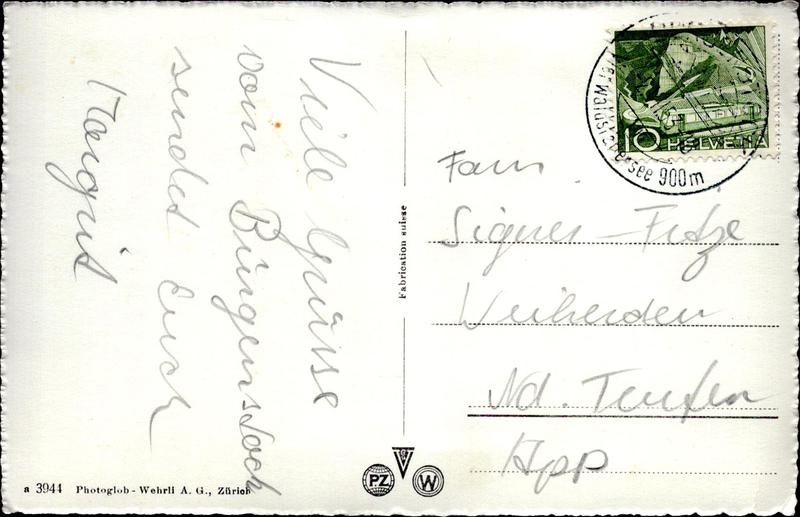 Viele Grüsse
vom Bürgenstock
sendet Euch
Margrit
Fabrication suisse
a 3944 Photoglob-Wehrli A. G., Zürich
PZ
W
10 HELVETIA
Vierwaldstättersee 900m
Fam.
Signer-Fitze
Weiherden
Nd. Teufen
App